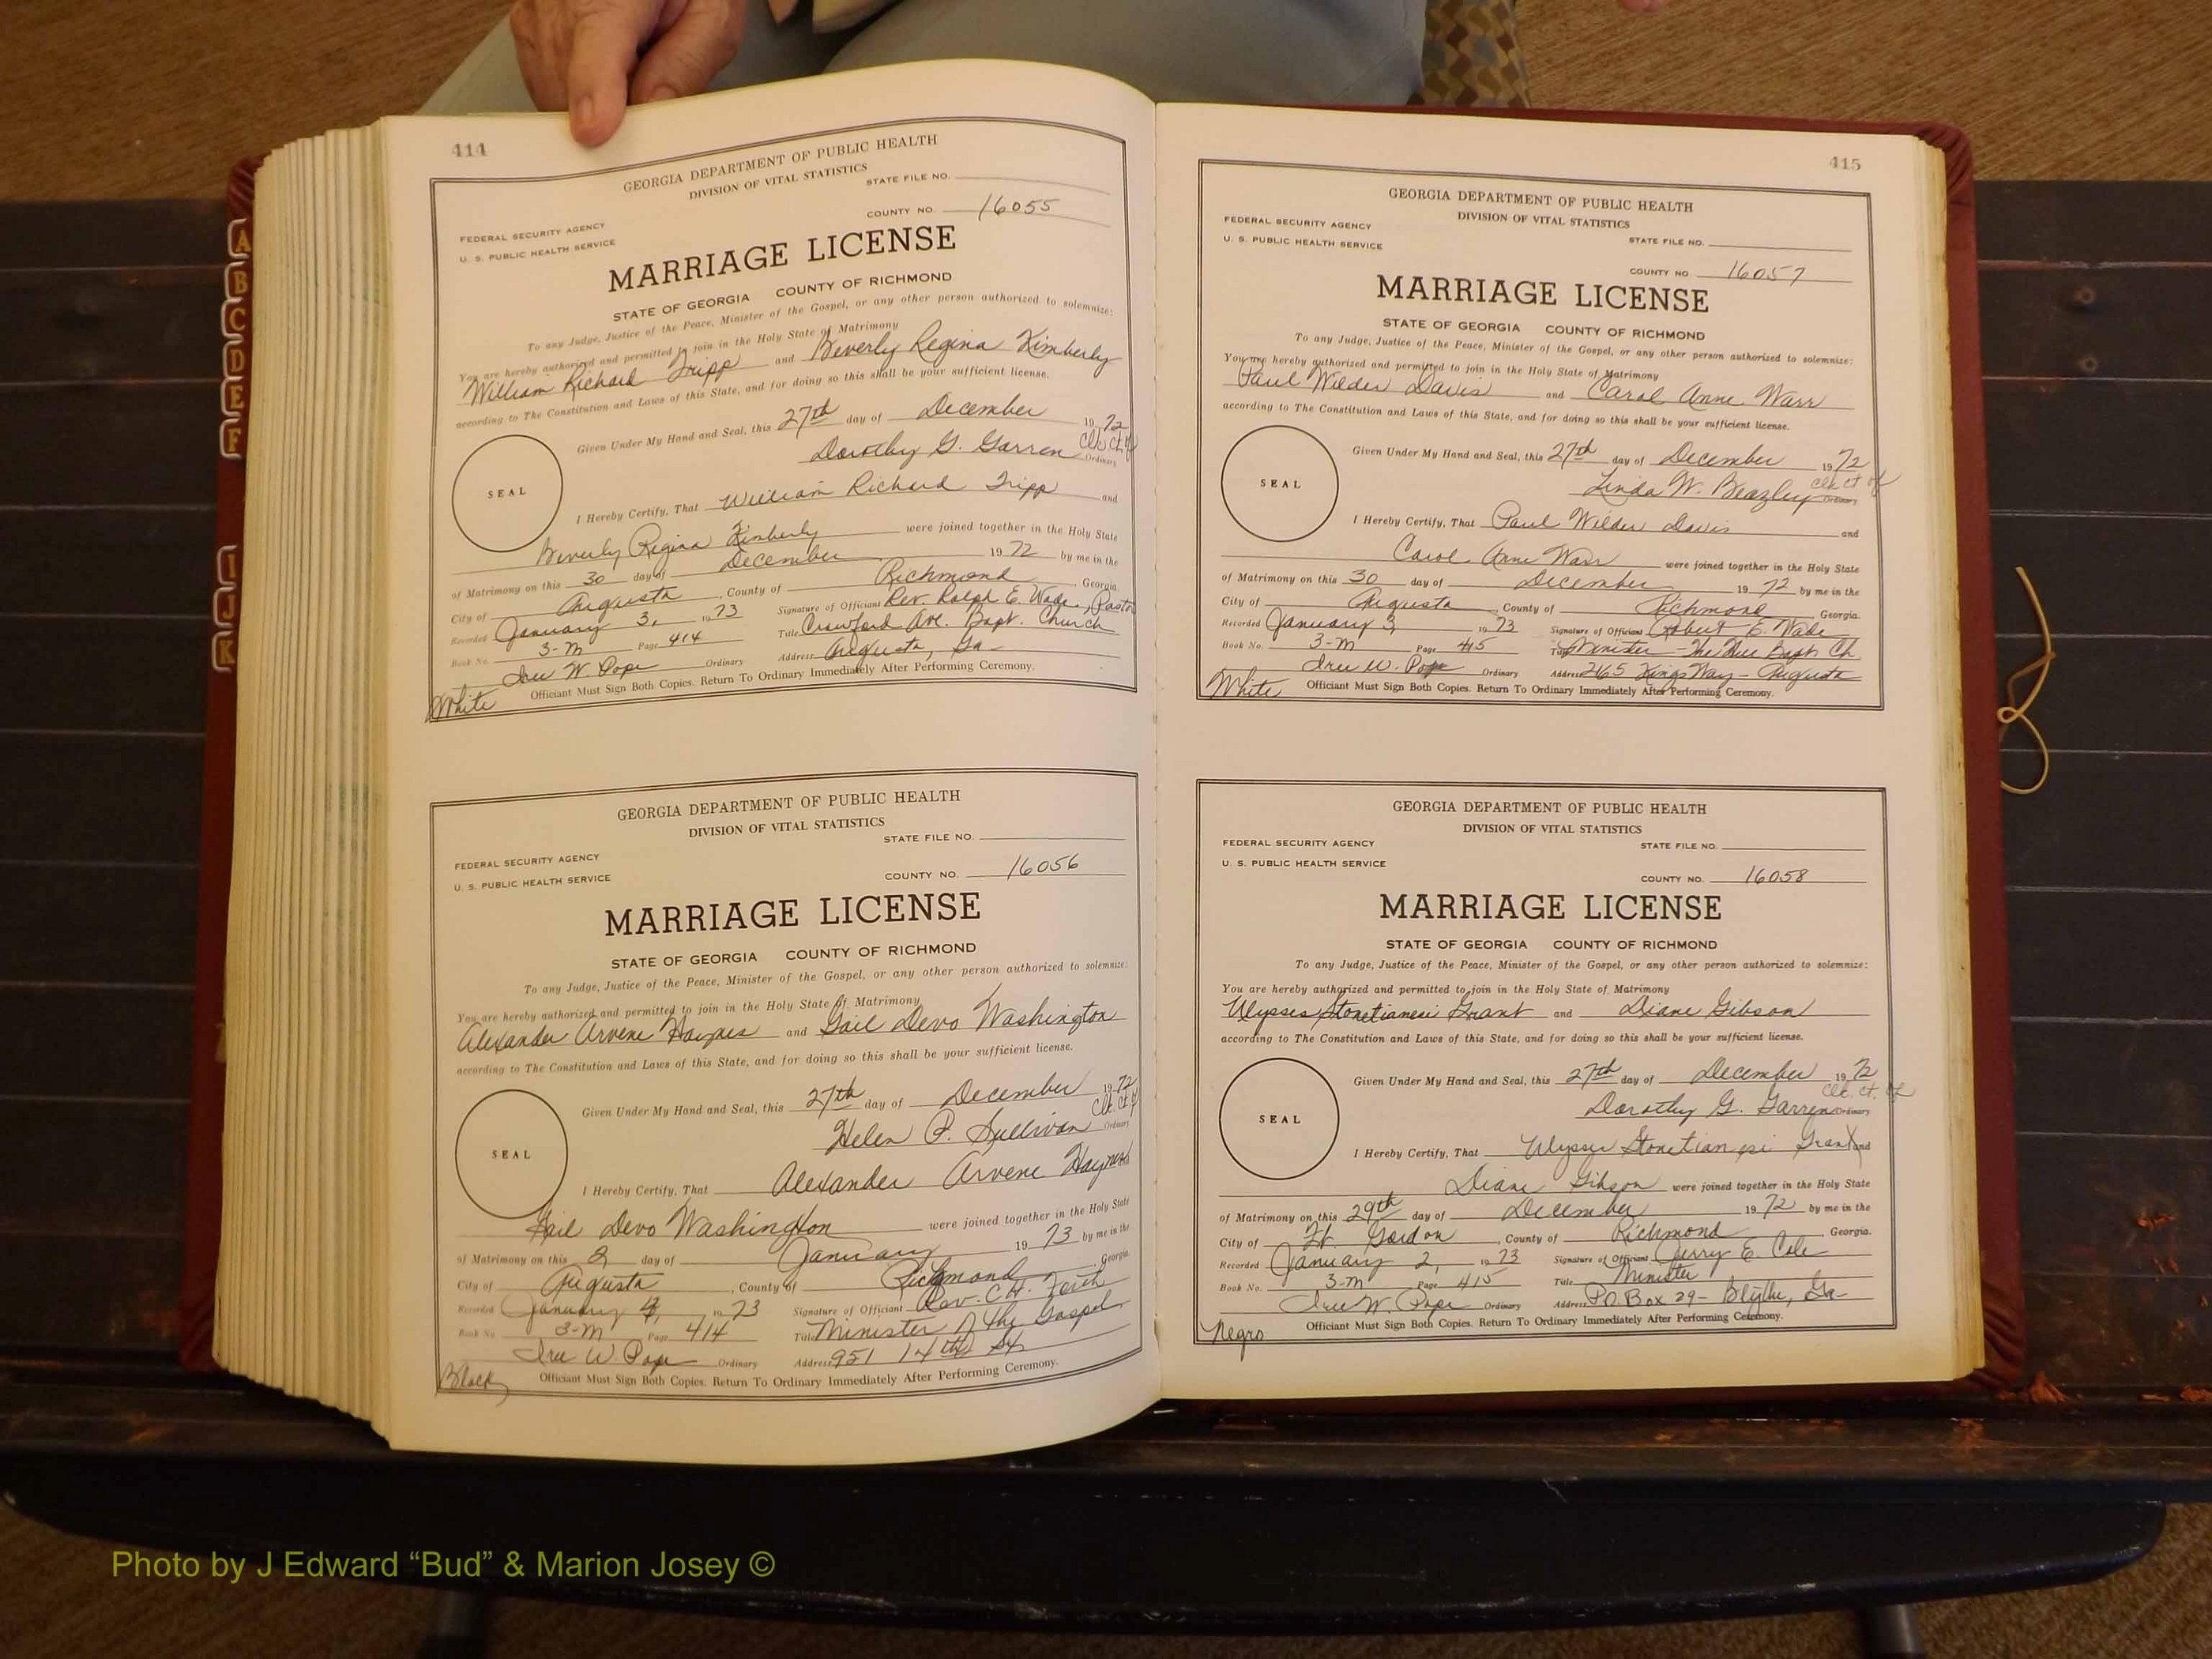 414
GEORGIA DEPARTMENT OF PUBLIC HEALTH
DIVISION OF VITAL STATISTICS
STATE FILE NO.
COUNTY NO. 16055
FEDERAL SECURITY AGENCY
U. S. PUBLIC HEALTH SERVICE
MARRIAGE LICENSE
STATE OF GEORGIA COUNTY OF RICHMOND
To any Judge, Justice of the Peace, Minister of the Gospel, or any other person authorized to solemnize:
You are hereby authorized and permitted to join in the Holy State of Matrimony
William Richard Tripp and Beverly Regina Kimberly
according to The Constitution and Laws of this State, and for doing so this shall be your sufficient license.
Given Under My Hand and Seal, this 27th day of December 1972
Dorothy G. Garren Clk ct of Ordinary
SEAL
I Hereby Certify, That William Richard Tripp and
Beverly Regina Kimberly were joined together in the Holy State
of Matrimony on this 30 day of December 1972 by me in the
City of Augusta, County of Richmond, Georgia.
Recorded January 3, 1973 Signature of Officiant Rev. Ralph E. Wade, Pastor
Book No. 3-M Page 414 Title Crawford Ave. Bapt. Church
Iree W. Pope Ordinary Address Augusta, Ga-
White Officiant Must Sign Both Copies. Return To Ordinary Immediately After Performing Ceremony.
GEORGIA DEPARTMENT OF PUBLIC HEALTH
DIVISION OF VITAL STATISTICS
STATE FILE NO.
FEDERAL SECURITY AGENCY
U. S. PUBLIC HEALTH SERVICE
COUNTY NO. 16056
MARRIAGE LICENSE
STATE OF GEORGIA COUNTY OF RICHMOND
To any Judge, Justice of the Peace, Minister of the Gospel, or any other person authorized to solemnize:
You are hereby authorized and permitted to join in the Holy State of Matrimony
Alexander Arvene Haynes and Gail Devo Washington
according to The Constitution and Laws of this State, and for doing so this shall be your sufficient license.
Given Under My Hand and Seal, this 27th day of December 1972
Helen P. Sullivan Clk. ct of Ordinary
SEAL
I Hereby Certify, That Alexander Arvene Haynes and
Gail Devo Washington were joined together in the Holy State
of Matrimony on this 2, day of January 1973 by me in the
City of Augusta, County of Richmond Georgia.
Recorded January 4, 1973 Signature of Officiant Rev. C.H.
Book No. 3-M Page 414 Title Minister of the Gospel
Iree W. Pope Ordinary Address 951 14th St
Black Officiant Must Sign Both Copies. Return To Ordinary Immediately After Performing Ceremony.
415
GEORGIA DEPARTMENT OF PUBLIC HEALTH
DIVISION OF VITAL STATISTICS
FEDERAL SECURITY AGENCY
U. S. PUBLIC HEALTH SERVICE
STATE FILE NO.
COUNTY NO. 16057
MARRIAGE LICENSE
STATE OF GEORGIA COUNTY OF RICHMOND
To any Judge, Justice of the Peace, Minister of the Gospel, or any other person authorized to solemnize:
You are hereby authorized and permitted to join in the Holy State of Matrimony
Paul Wilder Davis and Carol Anne Warr
according to The Constitution and Laws of this State, and for doing so this shall be your sufficient license.
Given Under My Hand and Seal, this 27th day of December 1972
Linda W. Beazley clk ct of Ordinary
SEAL
I Hereby Certify, That Paul Wilder Davis and
Carol Anne Warr were joined together in the Holy State
of Matrimony on this 30 day of December 1972 by me in the
City of Augusta, County of Richmond Georgia.
Recorded January 3, 1973 Signature of Officiant Robert E. Wade
Book No. 3-M Page 415 Title Minister - The Bapt. Ch
Iree W. Pope Ordinary Address 2165 Kings Way - Augusta
White Officiant Must Sign Both Copies. Return To Ordinary Immediately After Performing Ceremony.
GEORGIA DEPARTMENT OF PUBLIC HEALTH
DIVISION OF VITAL STATISTICS
FEDERAL SECURITY AGENCY
U. S. PUBLIC HEALTH SERVICE
STATE FILE NO.
COUNTY NO. 16058
MARRIAGE LICENSE
STATE OF GEORGIA COUNTY OF RICHMOND
To any Judge, Justice of the Peace, Minister of the Gospel, or any other person authorized to solemnize:
You are hereby authorized and permitted to join in the Holy State of Matrimony
Ulysses Grant and Diane Gibson
according to The Constitution and Laws of this State, and for doing so this shall be your sufficient license.
Given Under My Hand and Seal, this 27th day of December 1972
Dorothy G. Garren Clk. ct. of Ordinary
SEAL
I Hereby Certify, That Ulysses Grant and
Diane Gibson were joined together in the Holy State
of Matrimony on this 29th day of December 1972 by me in the
City of Ft. Gordon, County of Richmond, Georgia.
Recorded January 2, 1973 Signature of Officiant Jerry E. Cole
Book No. 3-M Page 415 Title Minister
Iree W. Pope Ordinary Address P.O. Box 29- Blythe, Ga-
Negro Officiant Must Sign Both Copies. Return To Ordinary Immediately After Performing Ceremony.
A
B
C
D
E
F
I
J
K
Photo by J Edward “Bud” & Marion Josey ©